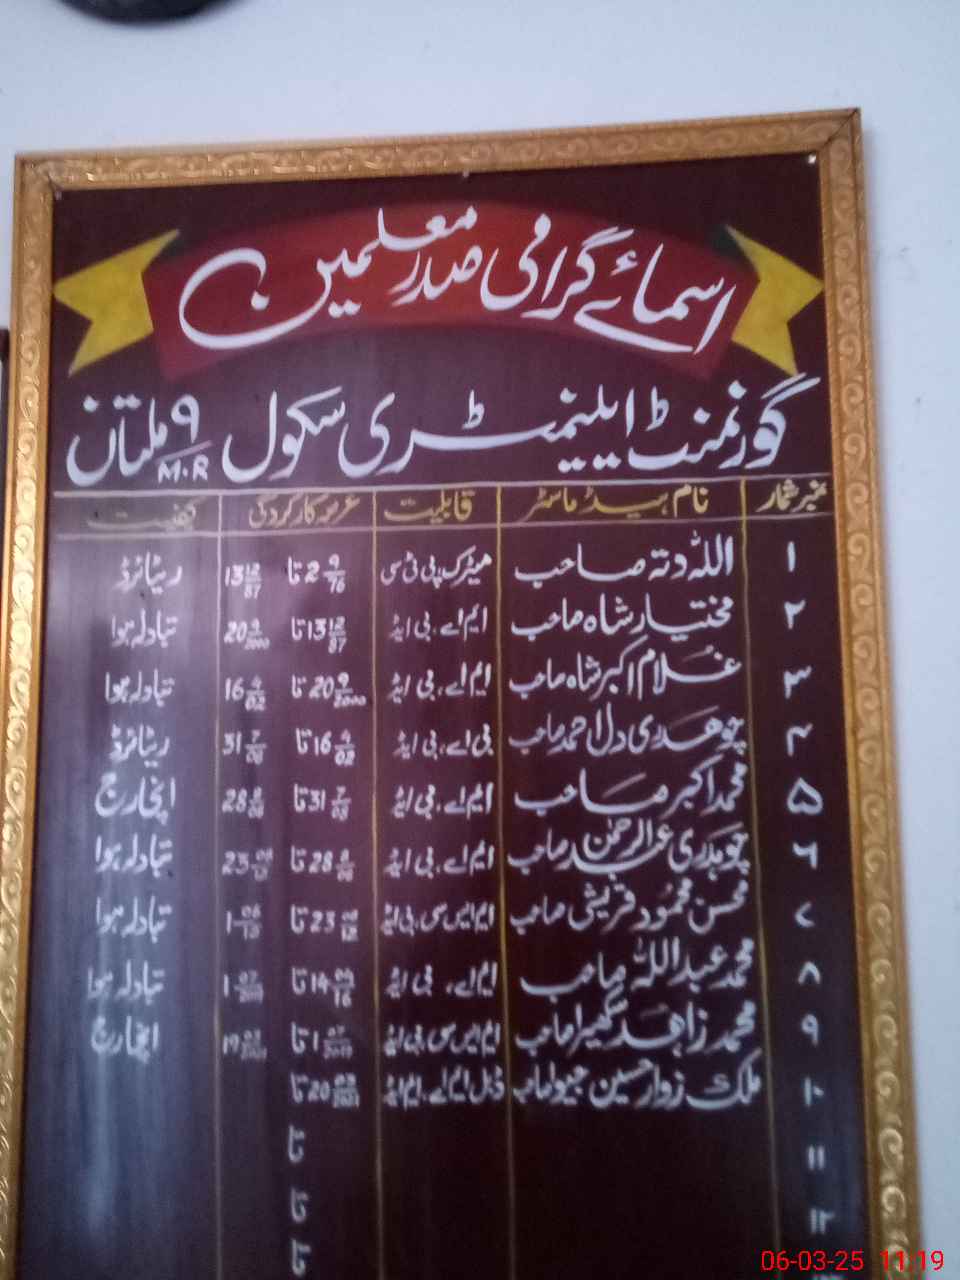 اسمائے گرامی صدر معلمین
گورنمنٹ ایلیمنٹری سکول 9 M.R ملتان
نمبر شمار نام ہیڈ ماسٹر قابلیت عرصہ کارکردگی کیفیت
۱ اللہ دتہ صاحب میٹرک، پی ٹی سی 2 9/76 تا 13 12/87 ریٹائرڈ
۲ مختیار شاہ صاحب ایم اے، بی ایڈ 13 12/87 تا 20 9/2000 تبادلہ ہوا
۳ غلام اکبر شاہ صاحب ایم اے، بی ایڈ 20 9/2000 تا 16 4/02 تبادلہ ہوا
۴ چوھدری دل احمد صاحب بی اے، بی ایڈ 16 4/02 تا 31 7/ ریٹائرڈ
۵ محمد اکبر صاحب ایم اے، بی ایڈ 31 7/ تا 28 8/ انچارج
۶ چوہدری عبد الرحمٰن صاحب ایم اے، بی ایڈ 28 8/ تا 23 تبادلہ ہوا
۷ محسن محمود قریشی صاحب ایم ایس سی، بی ایڈ 23 تا 1 تبادلہ ہوا
۸ محمد عبداللہ صاحب ایم اے، بی ایڈ 14 تا 1 تبادلہ ہوا
۹ محمد زاھد صاحب ایم ایس سی، بی ایڈ 1 07/2019 تا 19 03/2021 انچارج
۱۰ ملک زوار حسین صاحب ڈبل ایم اے، ایم ایڈ 20 03/2021 تا
۱۱ تا
۱۲ تا
تا
06-03-25 11:19